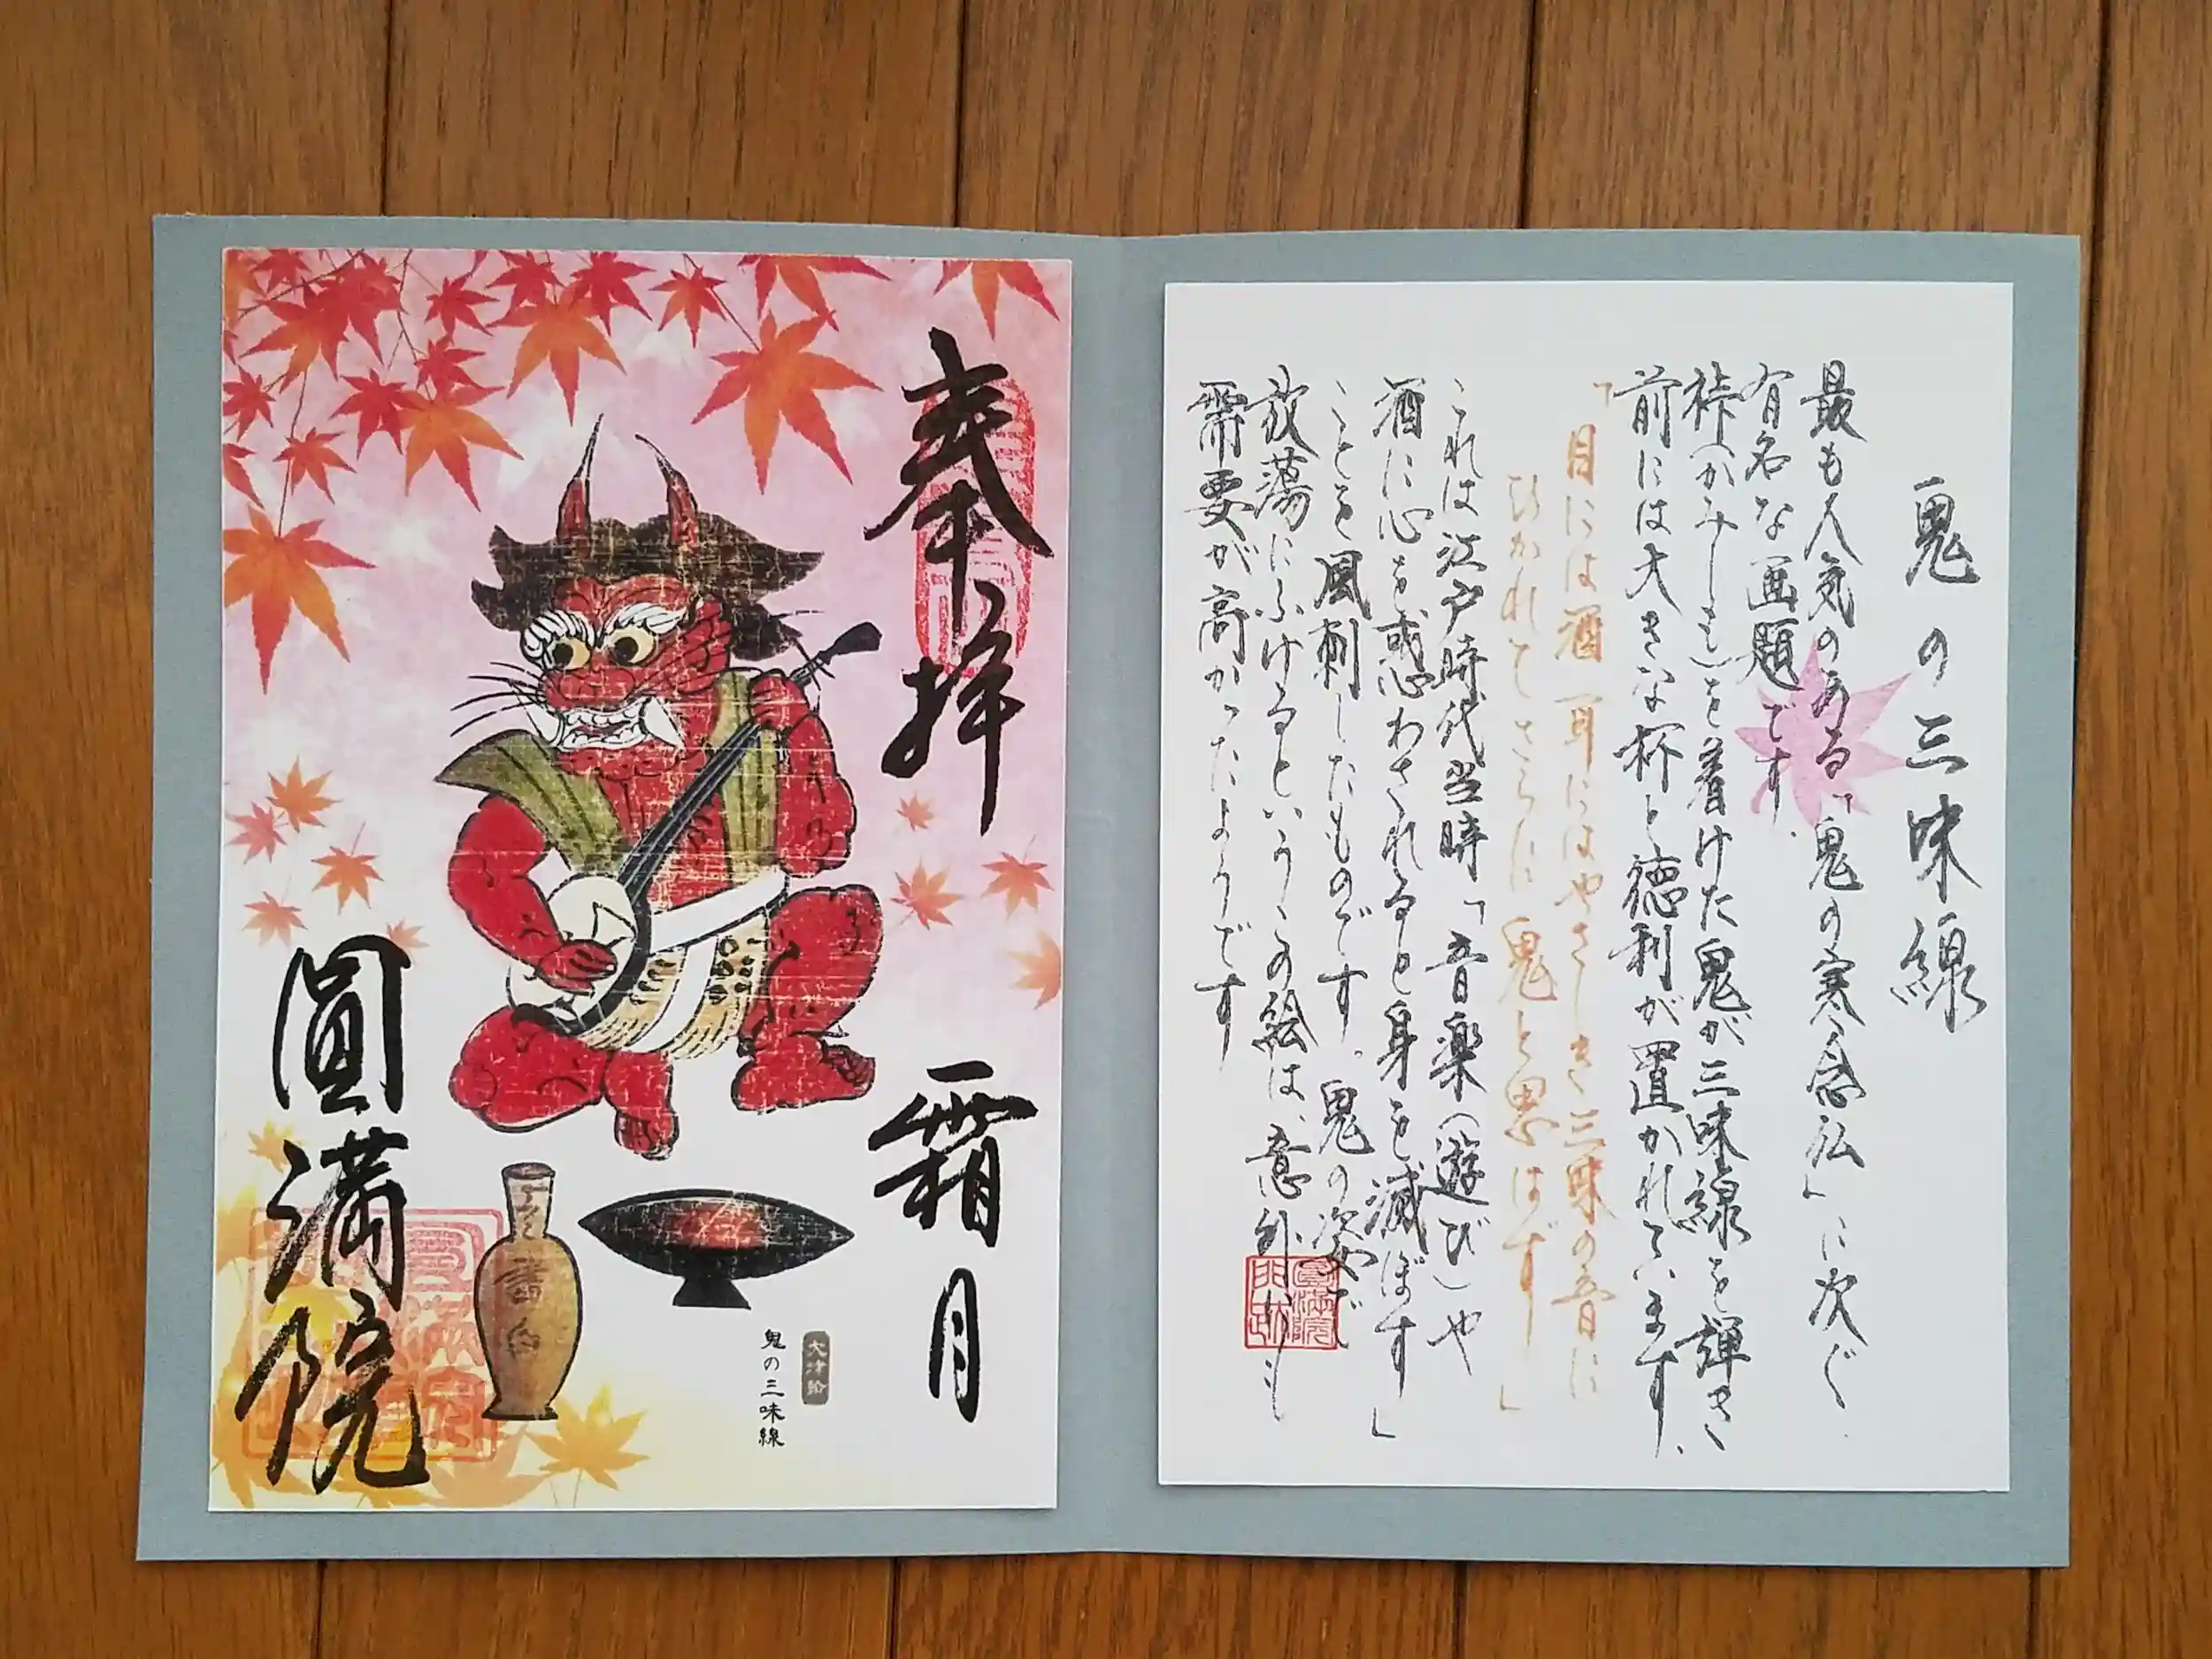 奉拝
霜月
大津絵
鬼の三味線
圓満院
鬼の三味線
最も人気のある「鬼の寒念仏」に次ぐ
有名な画題です。
裃(かみしも)を着けた鬼が三味線を弾き、
前には大きな杯と徳利が置かれています。
「目には酒 耳にはやさしき三味の音に
ひかれてさらに鬼と思はず」
これは江戸時代当時「音楽(遊び)や
酒に心を惑わされると身を滅ぼす」
ことを風刺したものです。鬼の姿で
放蕩にふけるというこの絵は、意外にも
需要が高かったようです
圓満院
門跡